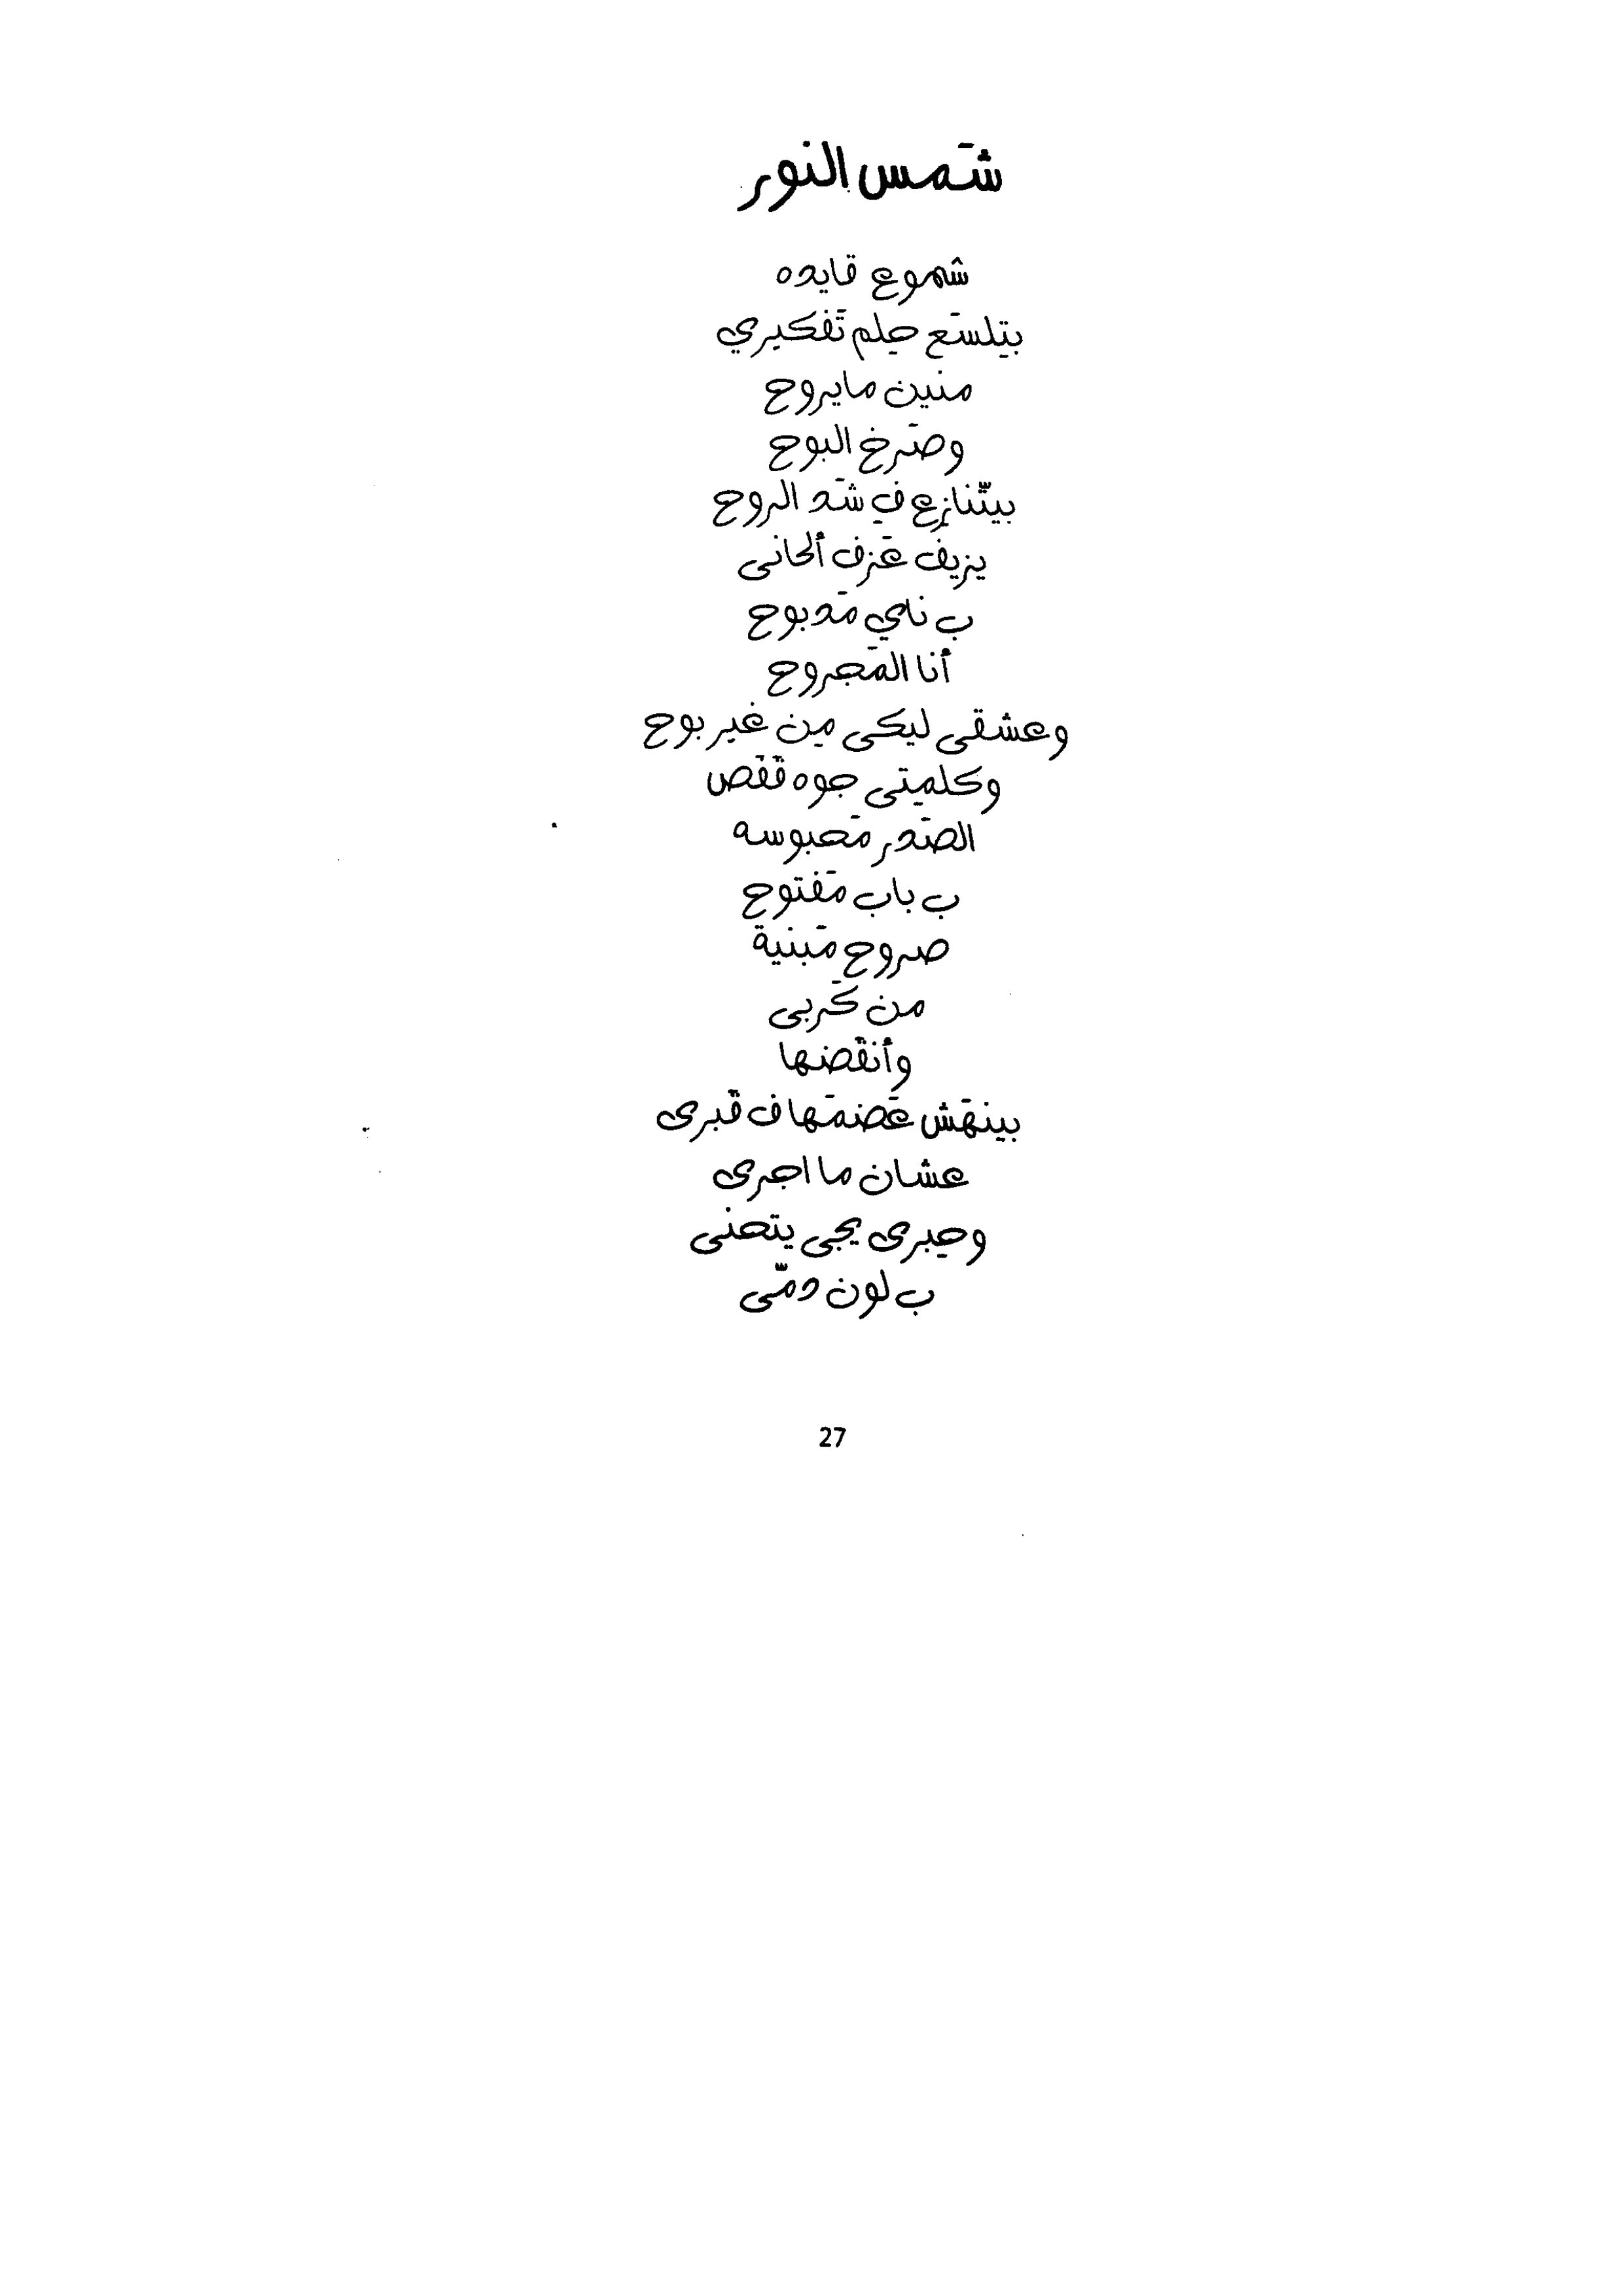 شَمس النور
شموع قايده
بتِلسَع حِلم تَفكيري
منين مايروح
وصَرخ البوح
بيتّنازع في شَد الروح
يزيف عَزف ألحانى
ب ناي مَدبوح
أنا المَجروح
وعشقى ليكى مِن غير بوح
وكلمِتى جوه قَفَص
الصَدر مَحبوسه
ب باب مَفتوح
صروح مَبنية
من كَربى
وأنقَضها
بينهَش عَضمَها ف قَبرى
عشان ما اجرى
وحِبرى يجى يتحنى
ب لون دمّى
27